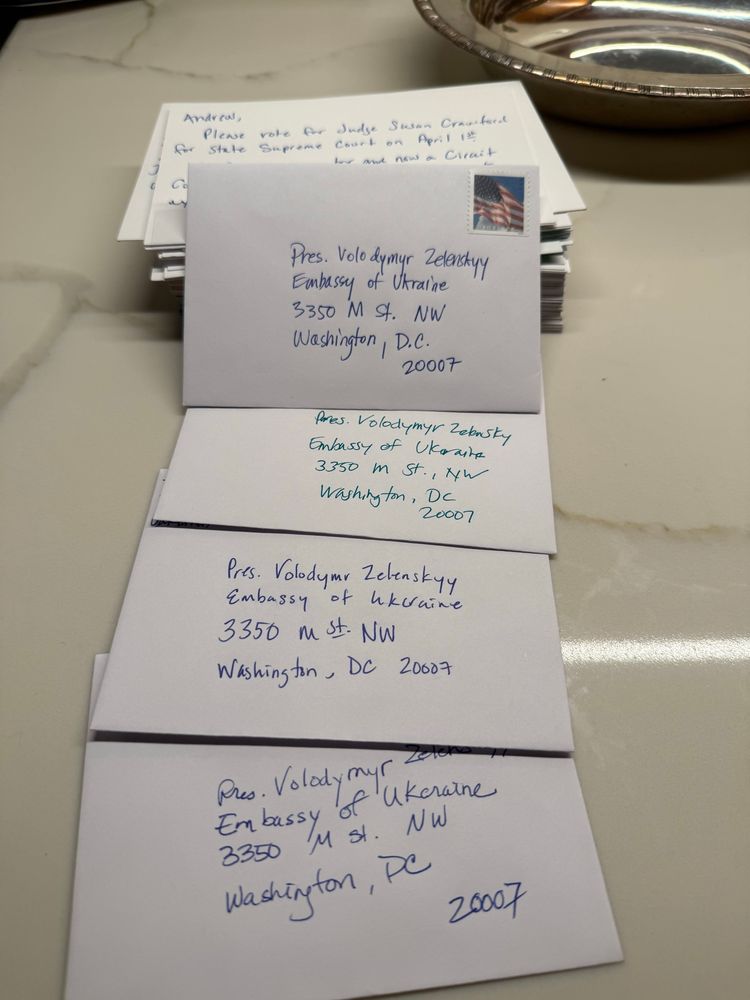 Andrew,
Please vote for Judge Susan Crawford
for State Supreme Court on April 1st
and now a Circuit
Co
Pres. Volodymyr Zelenskyy
Embassy of Ukraine
3350 M St. NW
Washington, D.C.
20007
Pres. Volodymyr Zelensky
Embassy of Ukraine
3350 M St., NW
Washington, DC
20007
Pres. Volodymr Zelenskyy
Embassy of Ukraine
3350 M St. NW
Washington, DC 20007
Pres. Volodymyr
Embassy of Ukraine
3350 M St. NW
Washington, DC
20007